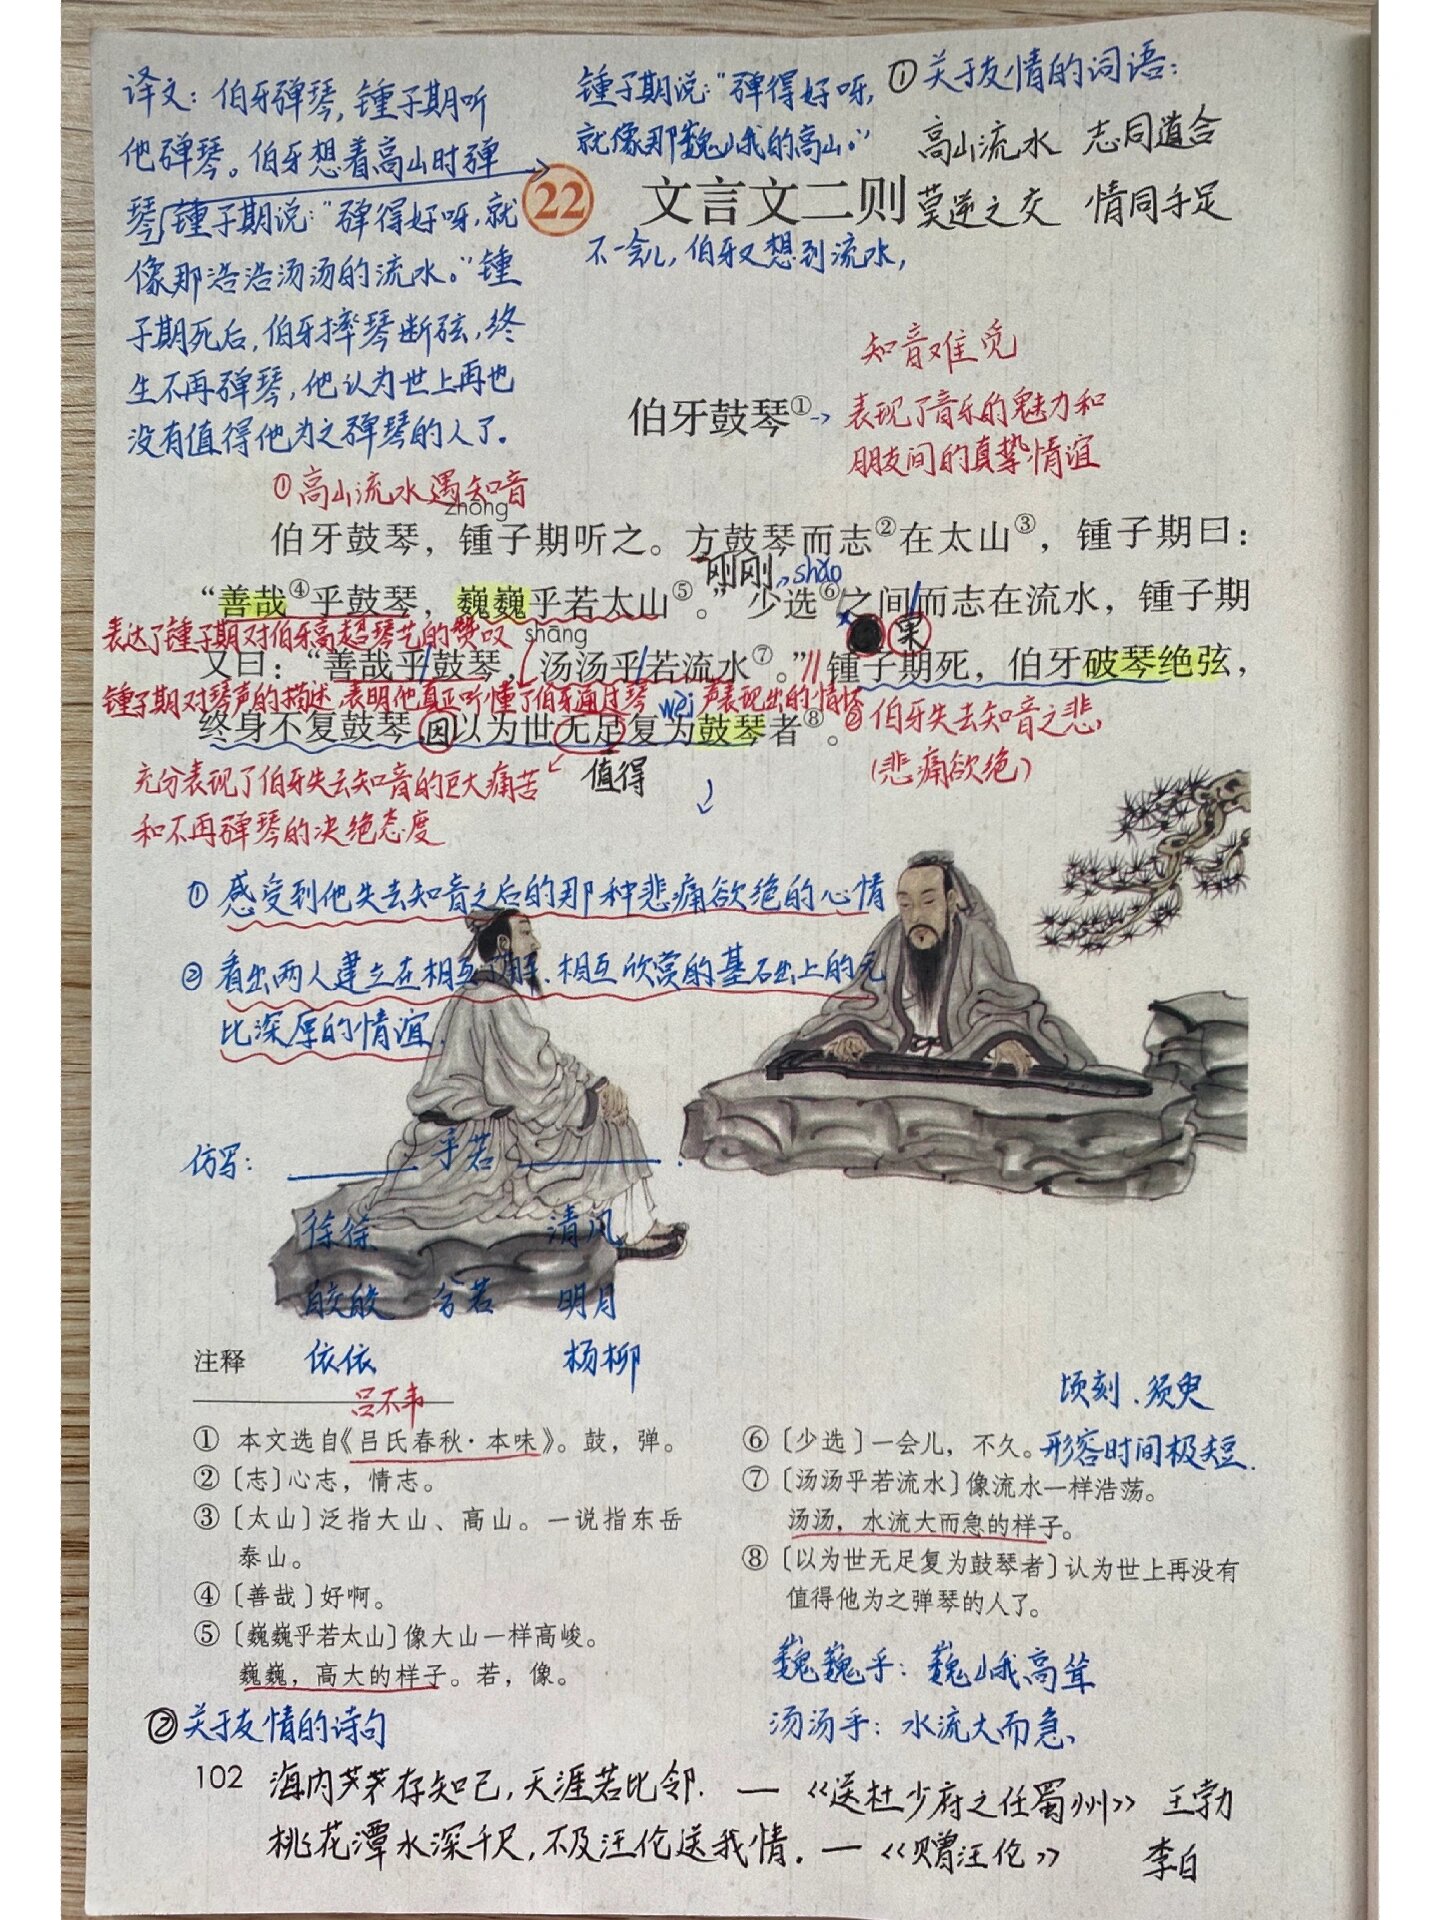 译文：伯牙弹琴，锺子期听
他弹琴。伯牙想着高山时弹
琴，锺子期说：“弹得好呀，就
像那浩浩汤汤的流水。”锺
子期死后，伯牙摔琴断弦，终
生不再弹琴，他认为世上再也
没有值得他为之弹琴的人了。
锺子期说：“弹得好呀，
就像那巍峨的高山。”
①关于友情的词语：
高山流水 志同道合
莫逆之交 情同手足
22 文言文二则
不一会儿，伯牙又想到流水，
知音难觅
伯牙鼓琴①
表现了音乐的魅力和
朋友间的真挚情谊
①高山流水遇知音
zhōng
伯牙鼓琴，锺子期听之。方鼓琴而志②在太山③，锺子期曰：
刚刚 shǎo
“善哉④乎鼓琴，巍巍乎若太山⑤。”少选⑥之间而志在流水，锺子期
表达了锺子期对伯牙高超琴艺的赞叹
shāng
果
又曰：“善哉乎鼓琴，汤汤乎若流水⑦。”锺子期死，伯牙破琴绝弦，
锺子期对琴声的描述，表明他真正听懂了伯牙通过琴声表现出的情怀
wèi
终身不复鼓琴，因以为世无足复为鼓琴者⑧。
②伯牙失去知音之悲，
（悲痛欲绝）
值得
充分表现了伯牙失去知音的巨大痛苦
和不再弹琴的决绝态度
①感受到他失去知音之后的那种悲痛欲绝的心情
②看出两人建立在相互了解、相互欣赏的基础上的无
比深厚的情谊.
仿写： 乎若 .
徐徐 清风
皎皎 兮若 明月
依依 杨柳
注释
吕不韦
① 本文选自《吕氏春秋·本味》。鼓，弹。
②〔志〕心志，情志。
③〔太山〕泛指大山、高山。一说指东岳
泰山。
④〔善哉〕好啊。
⑤〔巍巍乎若太山〕像大山一样高峻。
巍巍，高大的样子。若，像。
顷刻、须臾
⑥〔少选〕一会儿，不久。形容时间极短.
⑦〔汤汤乎若流水〕像流水一样浩荡。
汤汤，水流大而急的样子。
⑧〔以为世无足复为鼓琴者〕认为世上再没有
值得他为之弹琴的人了。
巍巍乎：巍峨高耸
汤汤乎：水流大而急、
②关于友情的诗句
102
海内存知己，天涯若比邻. —《送杜少府之任蜀州》 王勃
桃花潭水深千尺，不及汪伦送我情. —《赠汪伦》 李白